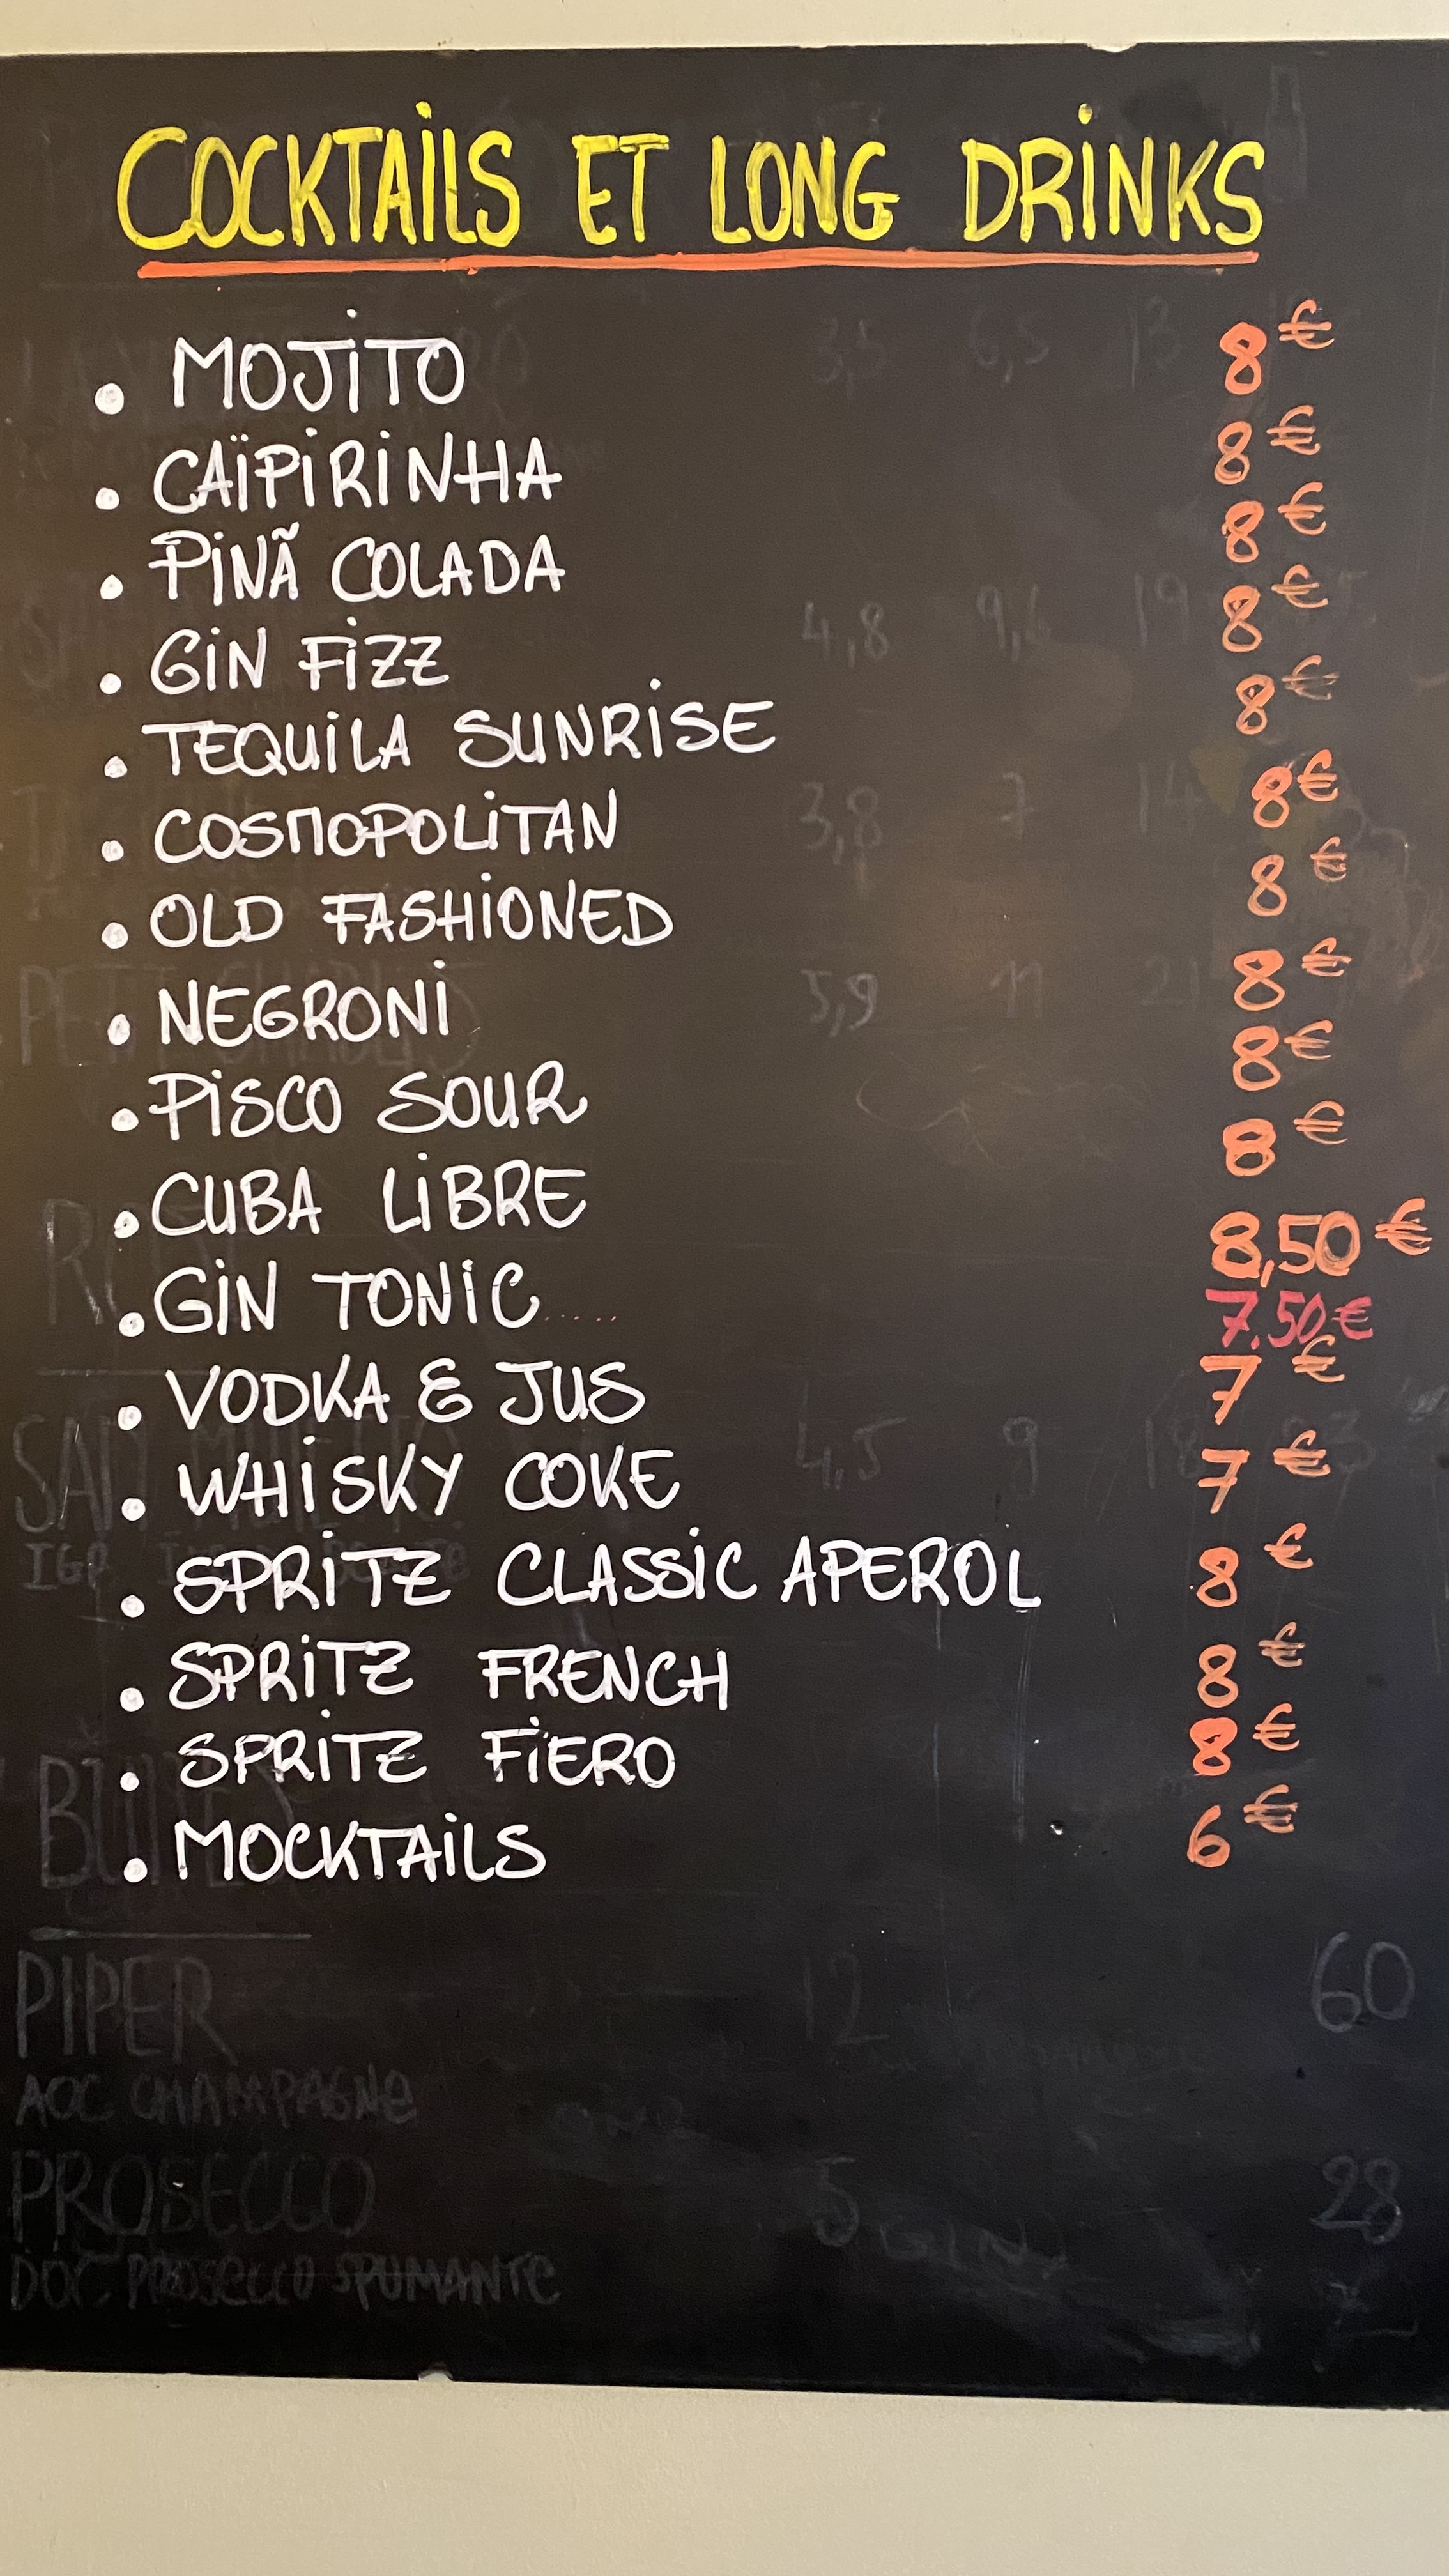 COCKTAILS ET LONG DRINKS
• MOJITO 8€
• CAÏPIRINHA 8€
• PINÃ COLADA 8€
• GIN FIZZ 8€
• TEQUILA SUNRISE 8€
• COSMOPOLITAN 8€
• OLD FASHIONED 8€
• NEGRONI 8€
• PISCO SOUR 8€
• CUBA LIBRE 8€
• GIN TONIC..... 8,50€
7.50€
• VODKA & JUS 7€
• WHISKY COKE 7€
• SPRITZ CLASSIC APEROL 8€
• SPRITZ FRENCH 8€
• SPRITZ FIERO 8€
• MOCKTAILS 6€
PIPER 12 60
AOC CHAMPAGNE
PROSECCO 5 28
DOC PROSECCO SPUMANTE